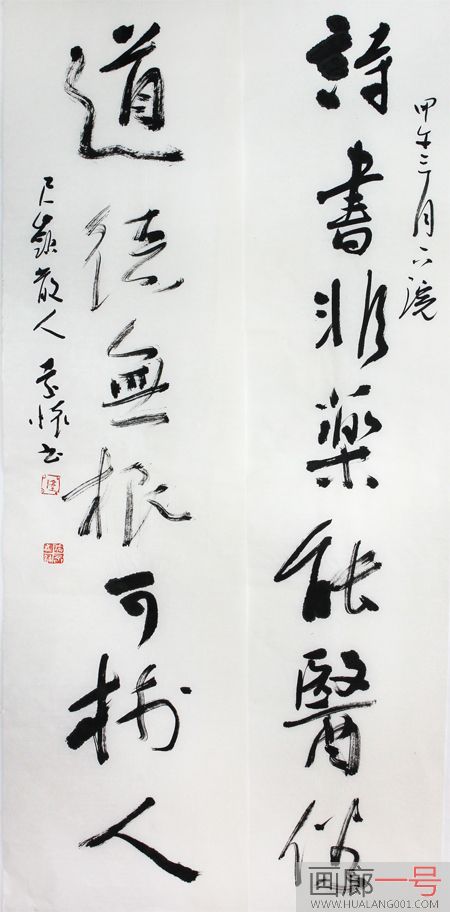 甲午三月
詩書非藥能醫俗
道德無根可樹人
散人
画廊一号
WWW.HUALANG001.COM